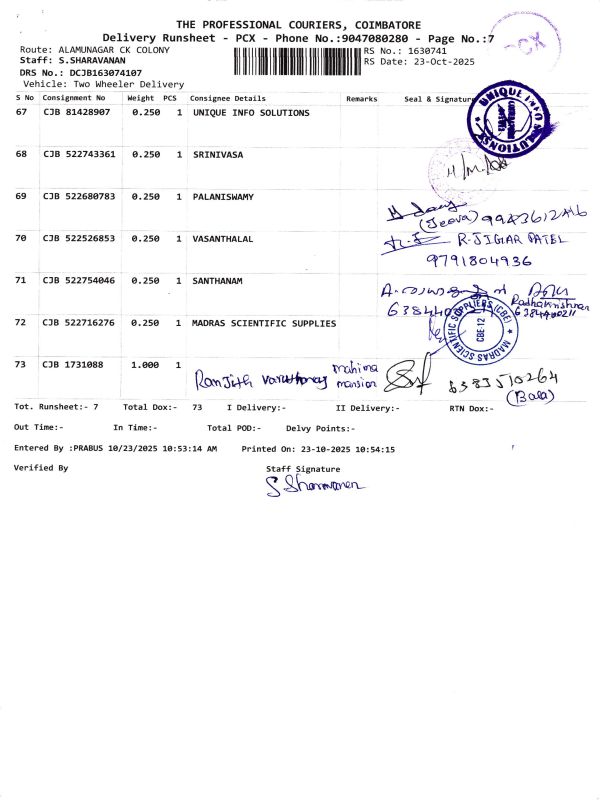 THE PROFESSIONAL COURIERS, COIMBATORE
Delivery Runsheet - PCX - Phone No.:9047080280 - Page No.:7
Route: ALAMUNAGAR CK COLONY
RS No.: 1630741
Staff: S.SHARAVANAN
RS Date: 23-Oct-2025
DRS No.: DCJB163074107
Vehicle: Two Wheeler Delivery
CX
S No Consignment No Weight PCS Consignee Details Remarks Seal & Signature
67 CJB 81428907 0.250 1 UNIQUE INFO SOLUTIONS
UNIQUE INFO SOLUTIONS
68 CJB 522743361 0.250 1 SRINIVASA
69 CJB 522680783 0.250 1 PALANISWAMY
(Jeeva)
70 CJB 522526853 0.250 1 VASANTHALAL
R-JIGAR PATEL
9791804936
71 CJB 522754046 0.250 1 SANTHANAM
Radhakrishnan
72 CJB 522716276 0.250 1 MADRAS SCIENTIFIC SUPPLIES
MADRAS SCIENTIFIC SUPPLIERS (CBE)
CBE-12
73 CJB 1731088 1.000 1
Ranjith
mahima
mansion
8383510264
(Bala)
Tot. Runsheet:- 7 Total Dox:- 73 I Delivery:- II Delivery:- RTN Dox:-
Out Time:- In Time:- Total POD:- Delvy Points:-
Entered By :PRABUS 10/23/2025 10:53:14 AM Printed On: 23-10-2025 10:54:15
Verified By Staff Signature
S Sharavanan